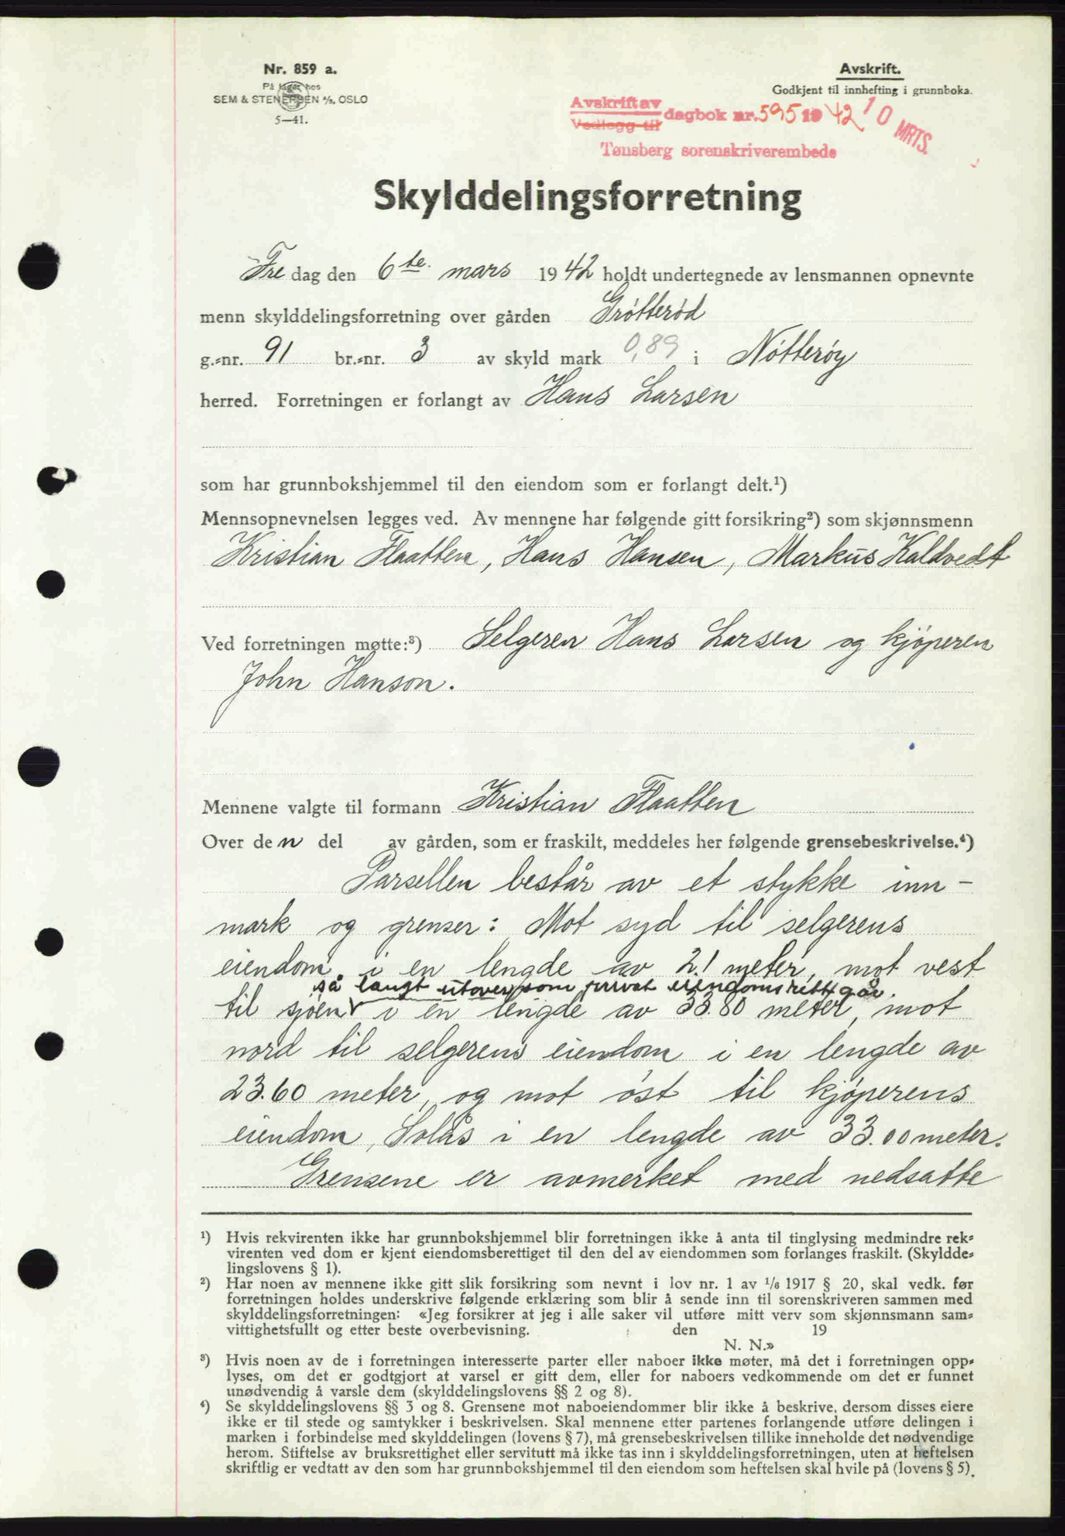 Nr. 859 a.
På lager hos
SEM & STENERSEN A/S, OSLO
5—41.
Avskrift.
Godkjent til innhefting i grunnboka.
Avskrift av
Vedlegg til
dagbok nr. 595 19 42
10 MRTS.
Tønsberg sorenskriverembede
Skylddelingsforretning
Fre dag den 6te. mars 1942 holdt undertegnede av lensmannen opnevnte
menn skylddelingsforretning over gården Grötteröd
g.-nr. 91 br.-nr. 3 av skyld mark 0,89 i Nötteröy
herred. Forretningen er forlangt av Hans Larsen
som har grunnbokshjemmel til den eiendom som er forlangt delt.¹)
Mennsopnevnelsen legges ved. Av mennene har følgende gitt forsikring²) som skjønnsmenn
Kristian Flaatten, Hans Hansen, Markus Kaldvedt
Ved forretningen møtte:³) Selgeren Hans Larsen og kjöperen
John Hanson.
Mennene valgte til formann Kristian Flaatten
Over den del av gården, som er fraskilt, meddeles her følgende grensebeskrivelse.⁴)
Parsellen består av et stykke inn-
mark og grenser: Mot syd til selgerens
eiendom, i en lengde av 2.1 meter, mot vest
så langt utover som privat eiendomsrett går
til sjöen i en lengde av 33.80 meter, mot
nord til selgerens eiendom i en lengde av
23.60 meter, og mot öst til kjöperens
eiendom, Solås i en lengde av 33.00 meter.
Grensene er avmerket med nedsatte
¹) Hvis rekvirenten ikke har grunnbokshjemmel blir forretningen ikke å anta til tinglysing medmindre rek-
virenten ved dom er kjent eiendomsberettiget til den del av eiendommen som forlanges fraskilt. (Skyldde-
lingslovens § 1).
²) Har noen av mennene ikke gitt slik forsikring som nevnt i lov nr. 1 av 1/6 1917 § 20, skal vedk. før
forretningen holdes underskrive følgende erklæring som blir å sende inn til sorenskriveren sammen med
skylddelingsforretningen: «Jeg forsikrer at jeg i alle saker vil utføre mitt verv som skjønnsmann sam-
vittighetsfullt og etter beste overbevisning. den 19
N. N.»
³) Hvis noen av de i forretningen interesserte parter eller naboer ikke møter, må det i forretningen opp-
lyses, om det er godtgjort at varsel er gitt dem, eller for naboers vedkommende om det er funnet
unødvendig å varsle dem (skylddelingslovens §§ 2 og 8).
⁴) Se skylddelingslovens §§ 3 og 8. Grensene mot naboeiendommer blir ikke å beskrive, dersom disses eiere
ikke er til stede og samtykker i beskrivelsen. Skal mennene etter partenes forlangende utføre delingen i
marken i forbindelse med skylddelingen (lovens § 7), må grensebeskrivelsen tillike inneholde det nødvendige
herom. Stiftelse av bruksrettighet eller servitutt må ikke tas inn i skylddelingsforretningen, uten at heftelsen
skriftlig er vedtatt av den som har grunnbokshjemmel til den eiendom som heftelsen skal hvile på (lovens § 5).